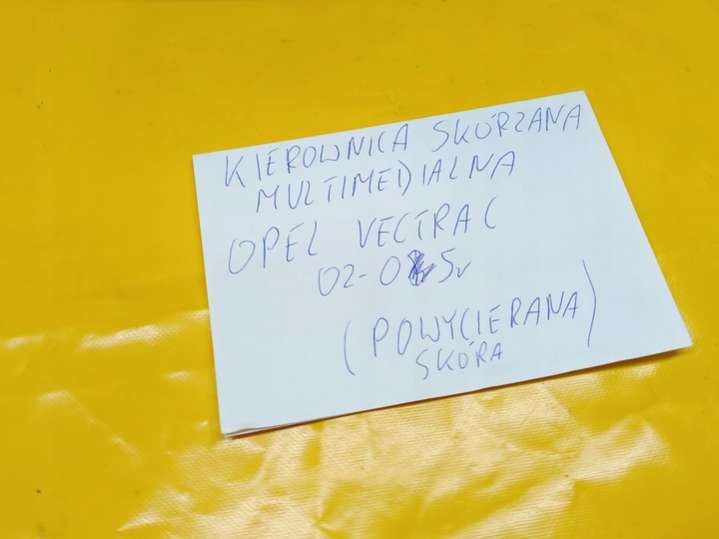 KIEROWNICA SKÓRZANA
MULTIMEDIALNA
OPEL VECTRA C
02-05r
(POWYCIERANA)
SKÓRA